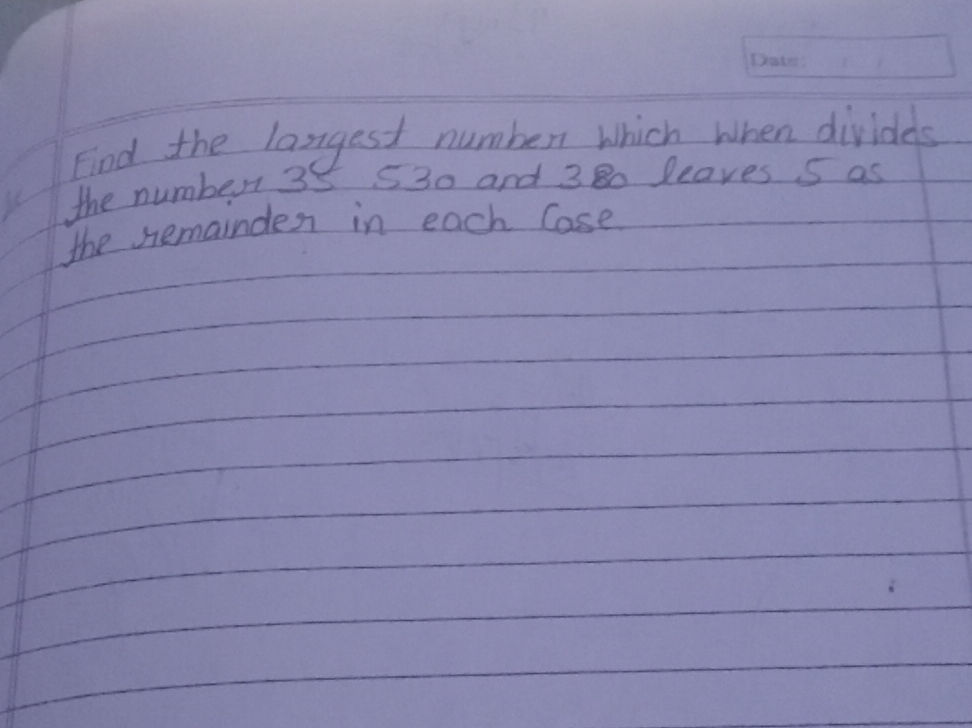 Date: / /
Find the largest number which when divides
the number 35 530 and 380 leaves 5 as
the remainder in each Case